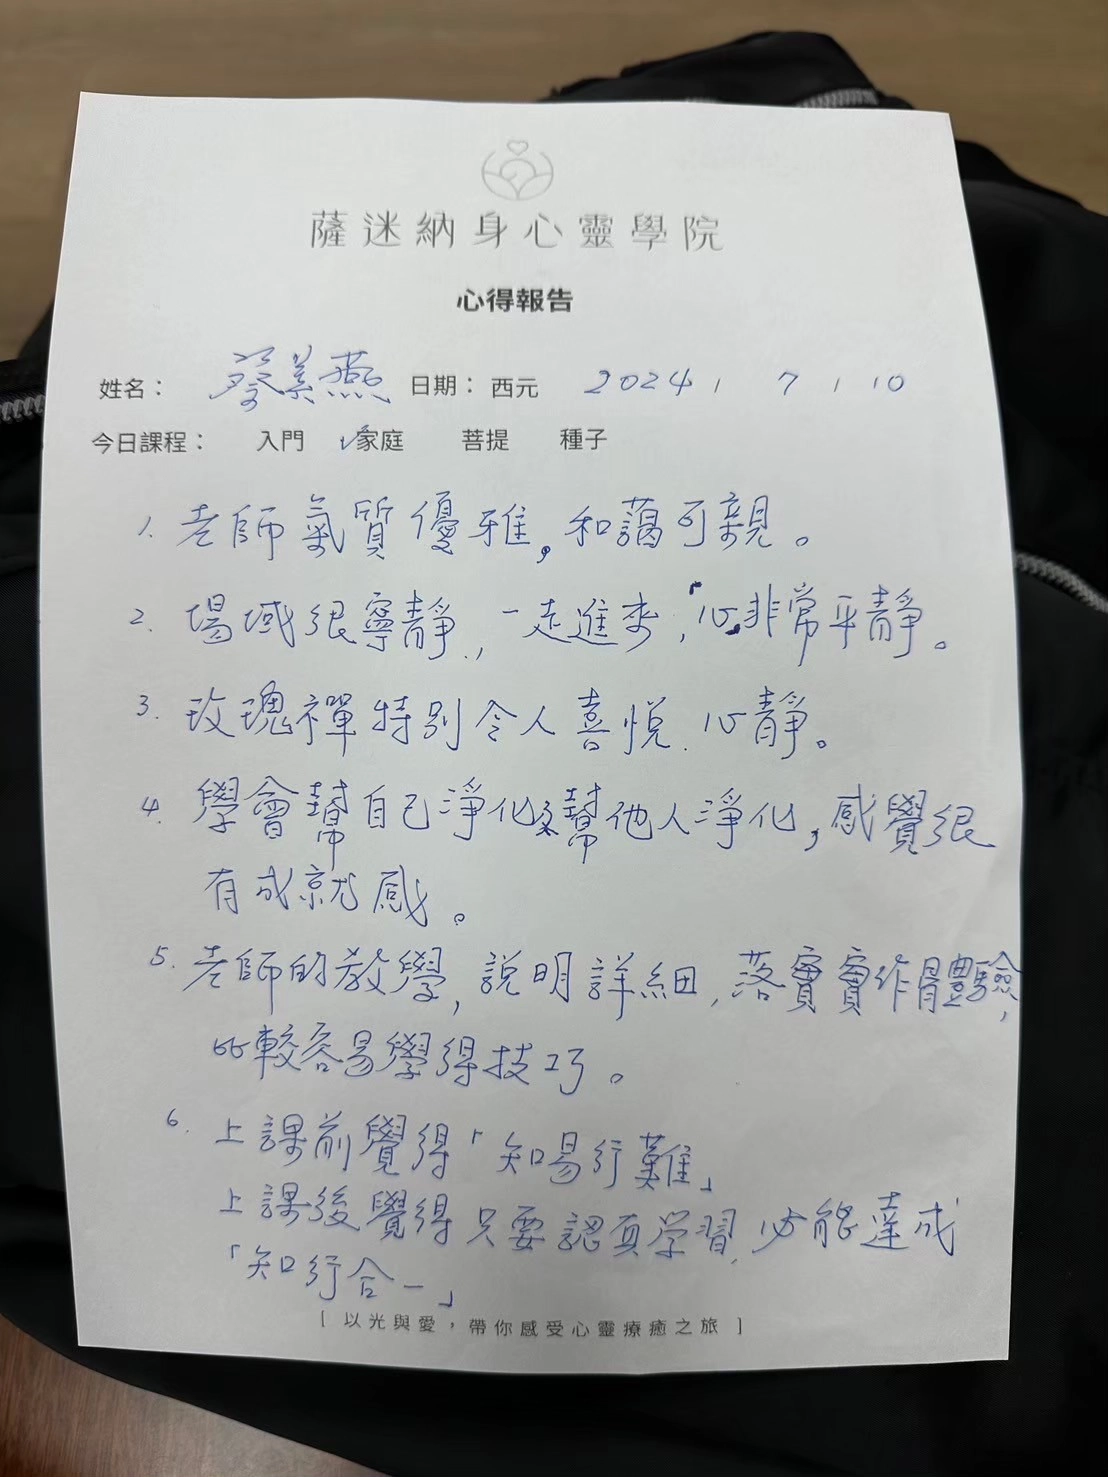 薩迷納身心靈學院
心得報告
姓名： 蔡美燕 日期： 西元 2024 / 7 / 10
今日課程： 入門 ✓家庭 菩提 種子
1. 老師氣質優雅，和藹可親。
2. 場域很寧靜，一走進來，「心」非常平靜。
3. 玫瑰禪特別令人喜悅、心靜。
4. 學會幫自己淨化及幫他人淨化，感覺很
有成就感。
5. 老師的教學，說明詳細，落實實作體驗，
比較容易學得技巧。
6. 上課前覺得「知易行難」
上課後覺得只要認真学習，必能達成
「知行合一」
［ 以光與愛，帶你感受心靈療癒之旅 ］